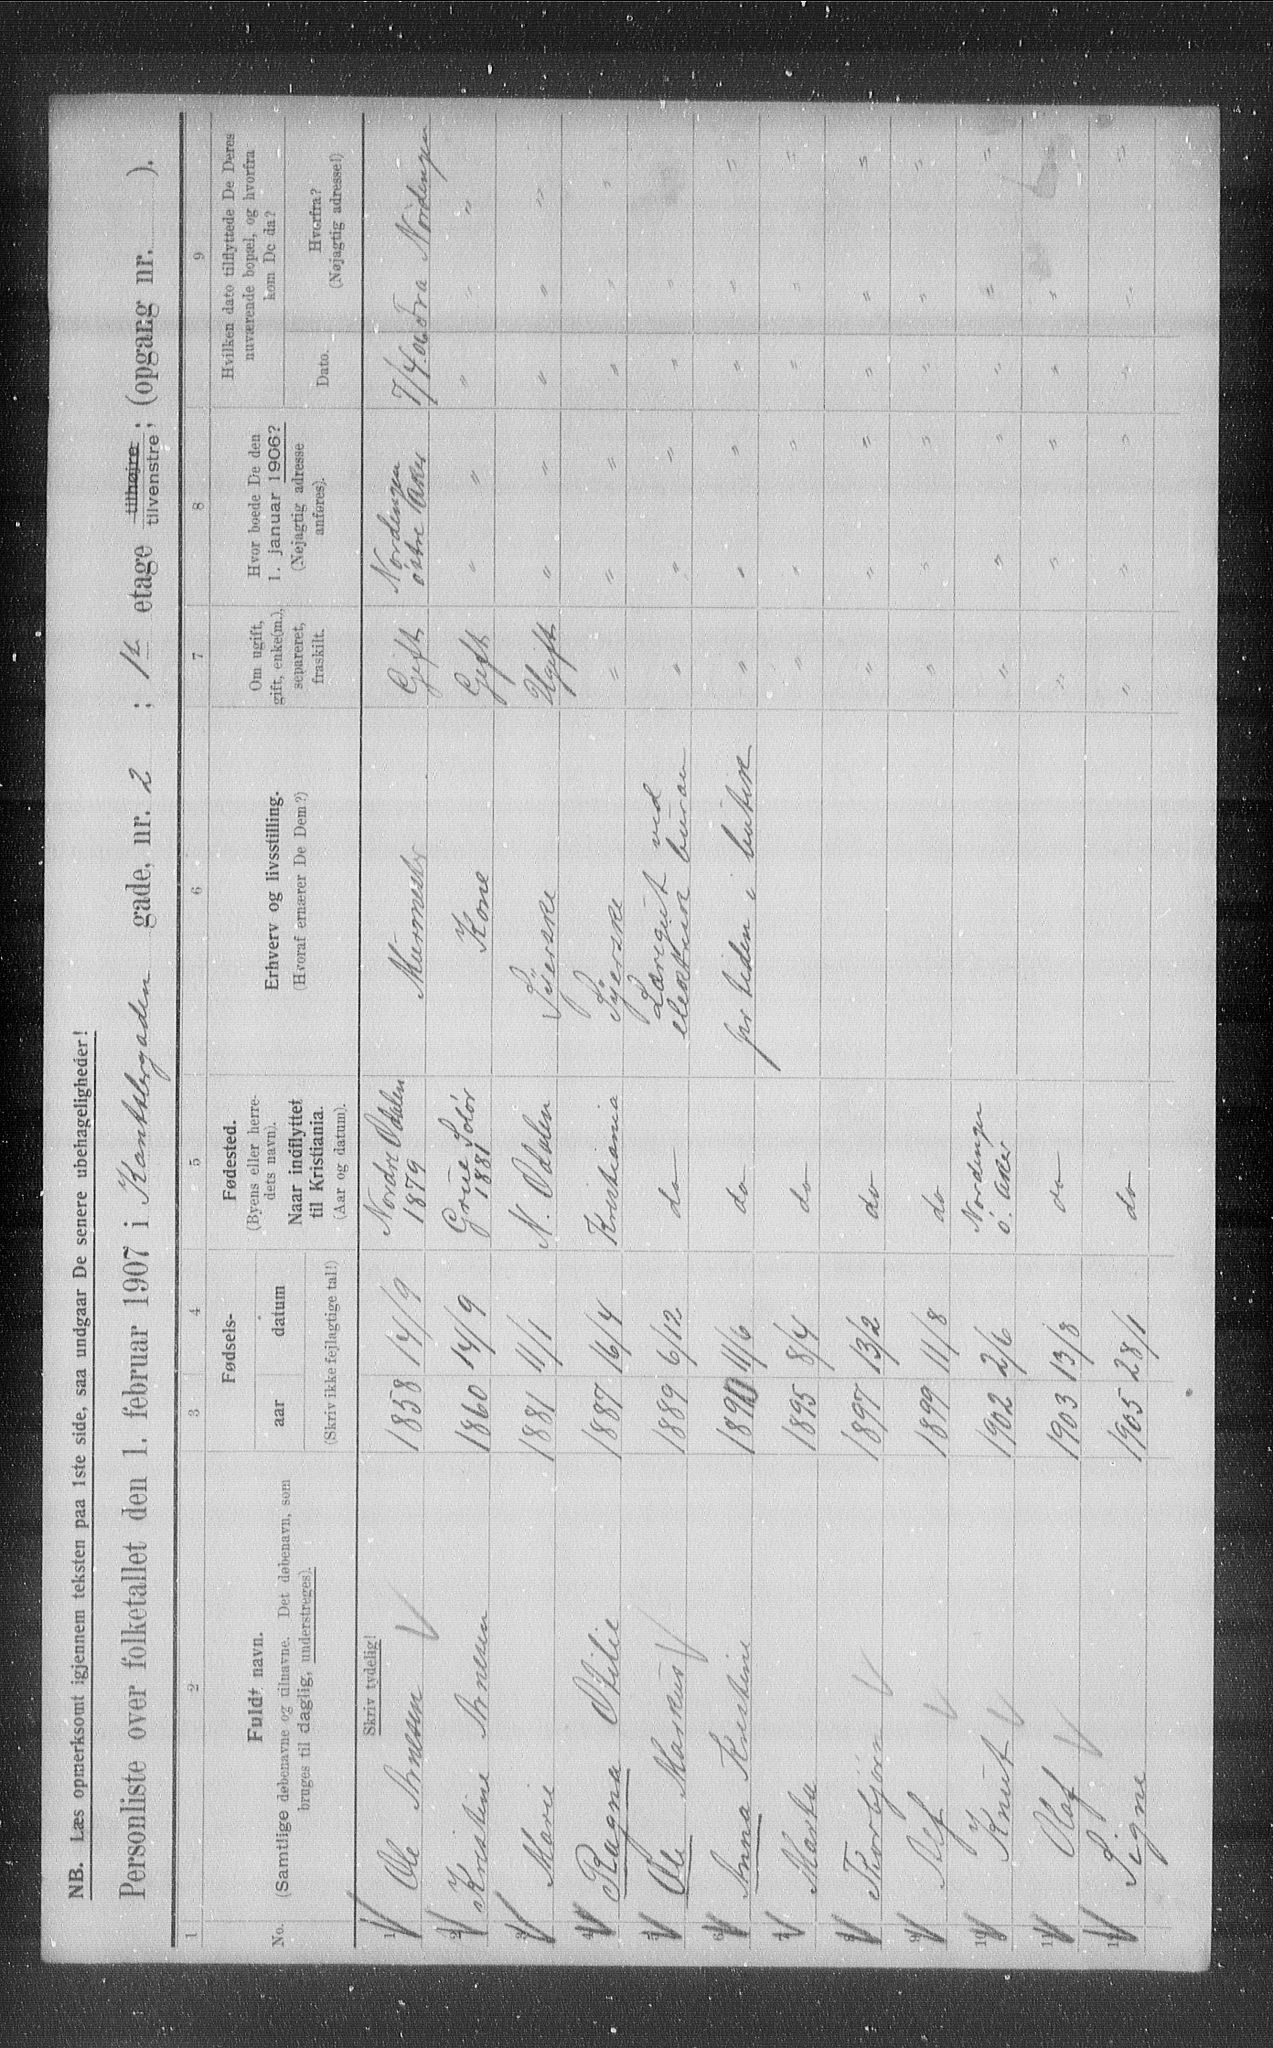 NB. Læs opmerksomt igjennem teksten paa 1ste side, saa undgaar De senere ubehageligheder!
Personliste over folketallet den 1. februar 1907 i Kantsbergaden gade, nr. 2 ; 1ste etage tilhøjre tilvenstre, ; (opgang nr. ).
1 2 3 4 5 6 7 8 9
No.
Fuldt navn.
(Samtlige døbenavne og tilnavne. Det døbenavn, som
bruges til daglig, understreges).
Fødsels-
aar datum
(Skriv ikke fejlagtige tal!)
Fødested.
(Byens eller herre-
dets navn).
Naar indflyttet
til Kristiania.
(Aar og datum).
Erhverv og livsstilling.
(Hvoraf ernærer De Dem?)
Om ugift,
gift, enke(m.),
separeret,
fraskilt.
Hvor boede De den
1. januar 1906?
(Nøjagtig adresse
anføres).
Hvilken dato tilflyttede De Deres
nuværende bopæl, og hvorfra
kom De da?
Dato.
Hvorfra?
(Nøjagtig adresse!)
Skriv tydelig!
1 Ole Arnesen 1858 14/9 Nordre Odalen 1879 Murmester Gift Nordengen østre Aker 7/4.06 Fra Nordengen
2 Kristine Arnesen 1860 14/9 Grue Solør 1881 Kone Gift " " " " "
3 Marie 1881 11/1 N. Odalen Syerske Ugift " " " " "
4 Ragna Otilie 1887 16/4 Kristiania Syerske " " " " " "
5 Ole Markus 1889 6/12 do Læregut ved elektrisk bureau " " " " "
6 Anna Kristine 1890 11/6 do for tiden i butik " " " " " "
7 Marta 1895 8/4 do " " " " " "
8 Thorbjørn 1897 13/2 do " " " " " "
9 Alf 1899 11/8 do " " " " " "
10 Knut 1902 2/6 Nordengen ø. Aker " " " " " "
11 Olaf 1903 13/8 do " " " " "
12 Signe 1905 28/1 do " " " " " "